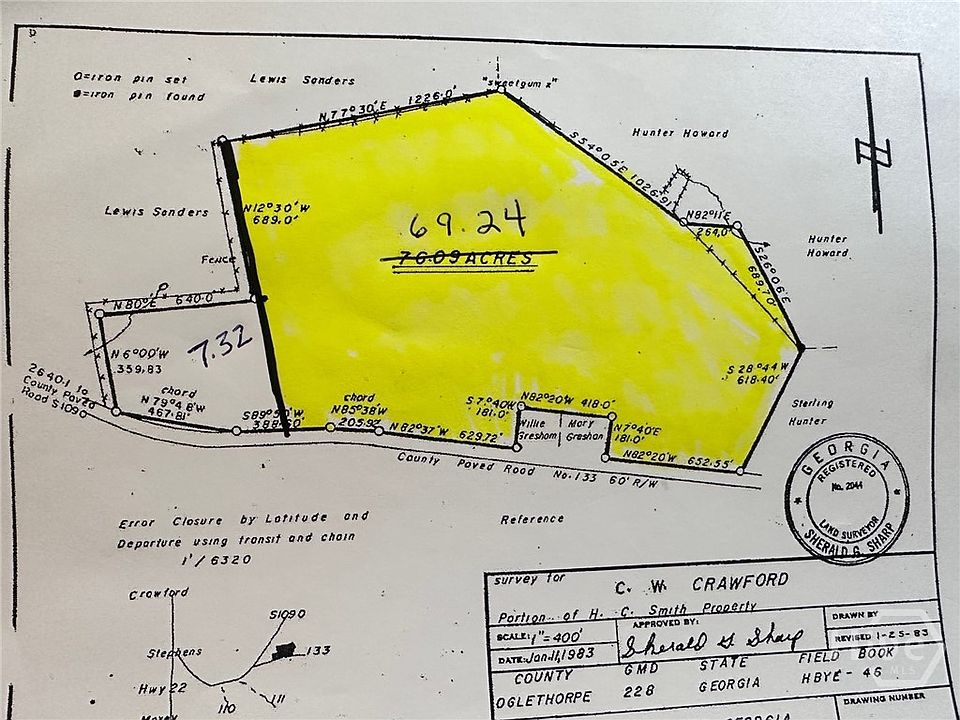 O=iron pin set
●=iron pin found
Lewis Sanders
"sweetgum x"
N77°30'E 1226.0'
S54°05'E 1026.91'
Hunter Howard
N82°11'E
264.0'
S26°06'E
689.70'
Hunter
Howard
Lewis Sanders
N12°30'W
689.0'
69.24
76.09 ACRES
Fence
N80°E 640.0'
7.32
N6°00'W
359.83
2640.1 to
County Paved
Road S1090
chord
N79°48'W
467.81'
S89°50'W
388.60'
chord
N85°38'W
205.92'
N82°37'W 629.72'
S7°40'W
181.0'
N82°20'W 418.0'
Willie
Gresham
Mary
Greshan
N7°40'E
181.0'
N82°20'W 652.55'
S28°44'W
618.40'
Sterling
Hunter
County Paved Road No. 133 60' R/W
GEORGIA
REGISTERED
No. 2044
LAND SURVEYOR
SHERALD G. SHARP
Error Closure by Latitude and
Departure using transit and chain
1'/6320
Reference
Crawford
S1090
Stephens
133
Hwy 22
110
111
Maxey
survey for C. W. CRAWFORD
Portion of H. C. Smith Property
SCALE: 1"=400'
APPROVED BY:
DRAWN BY
DATE: Jan.11,1983
Sherald G Sharp
REVISED 1-25-83
COUNTY GMD STATE FIELD BOOK
OGLETHORPE 228 GEORGIA HBYE-46
MLS
DRAWING NUMBER
GEORGIA